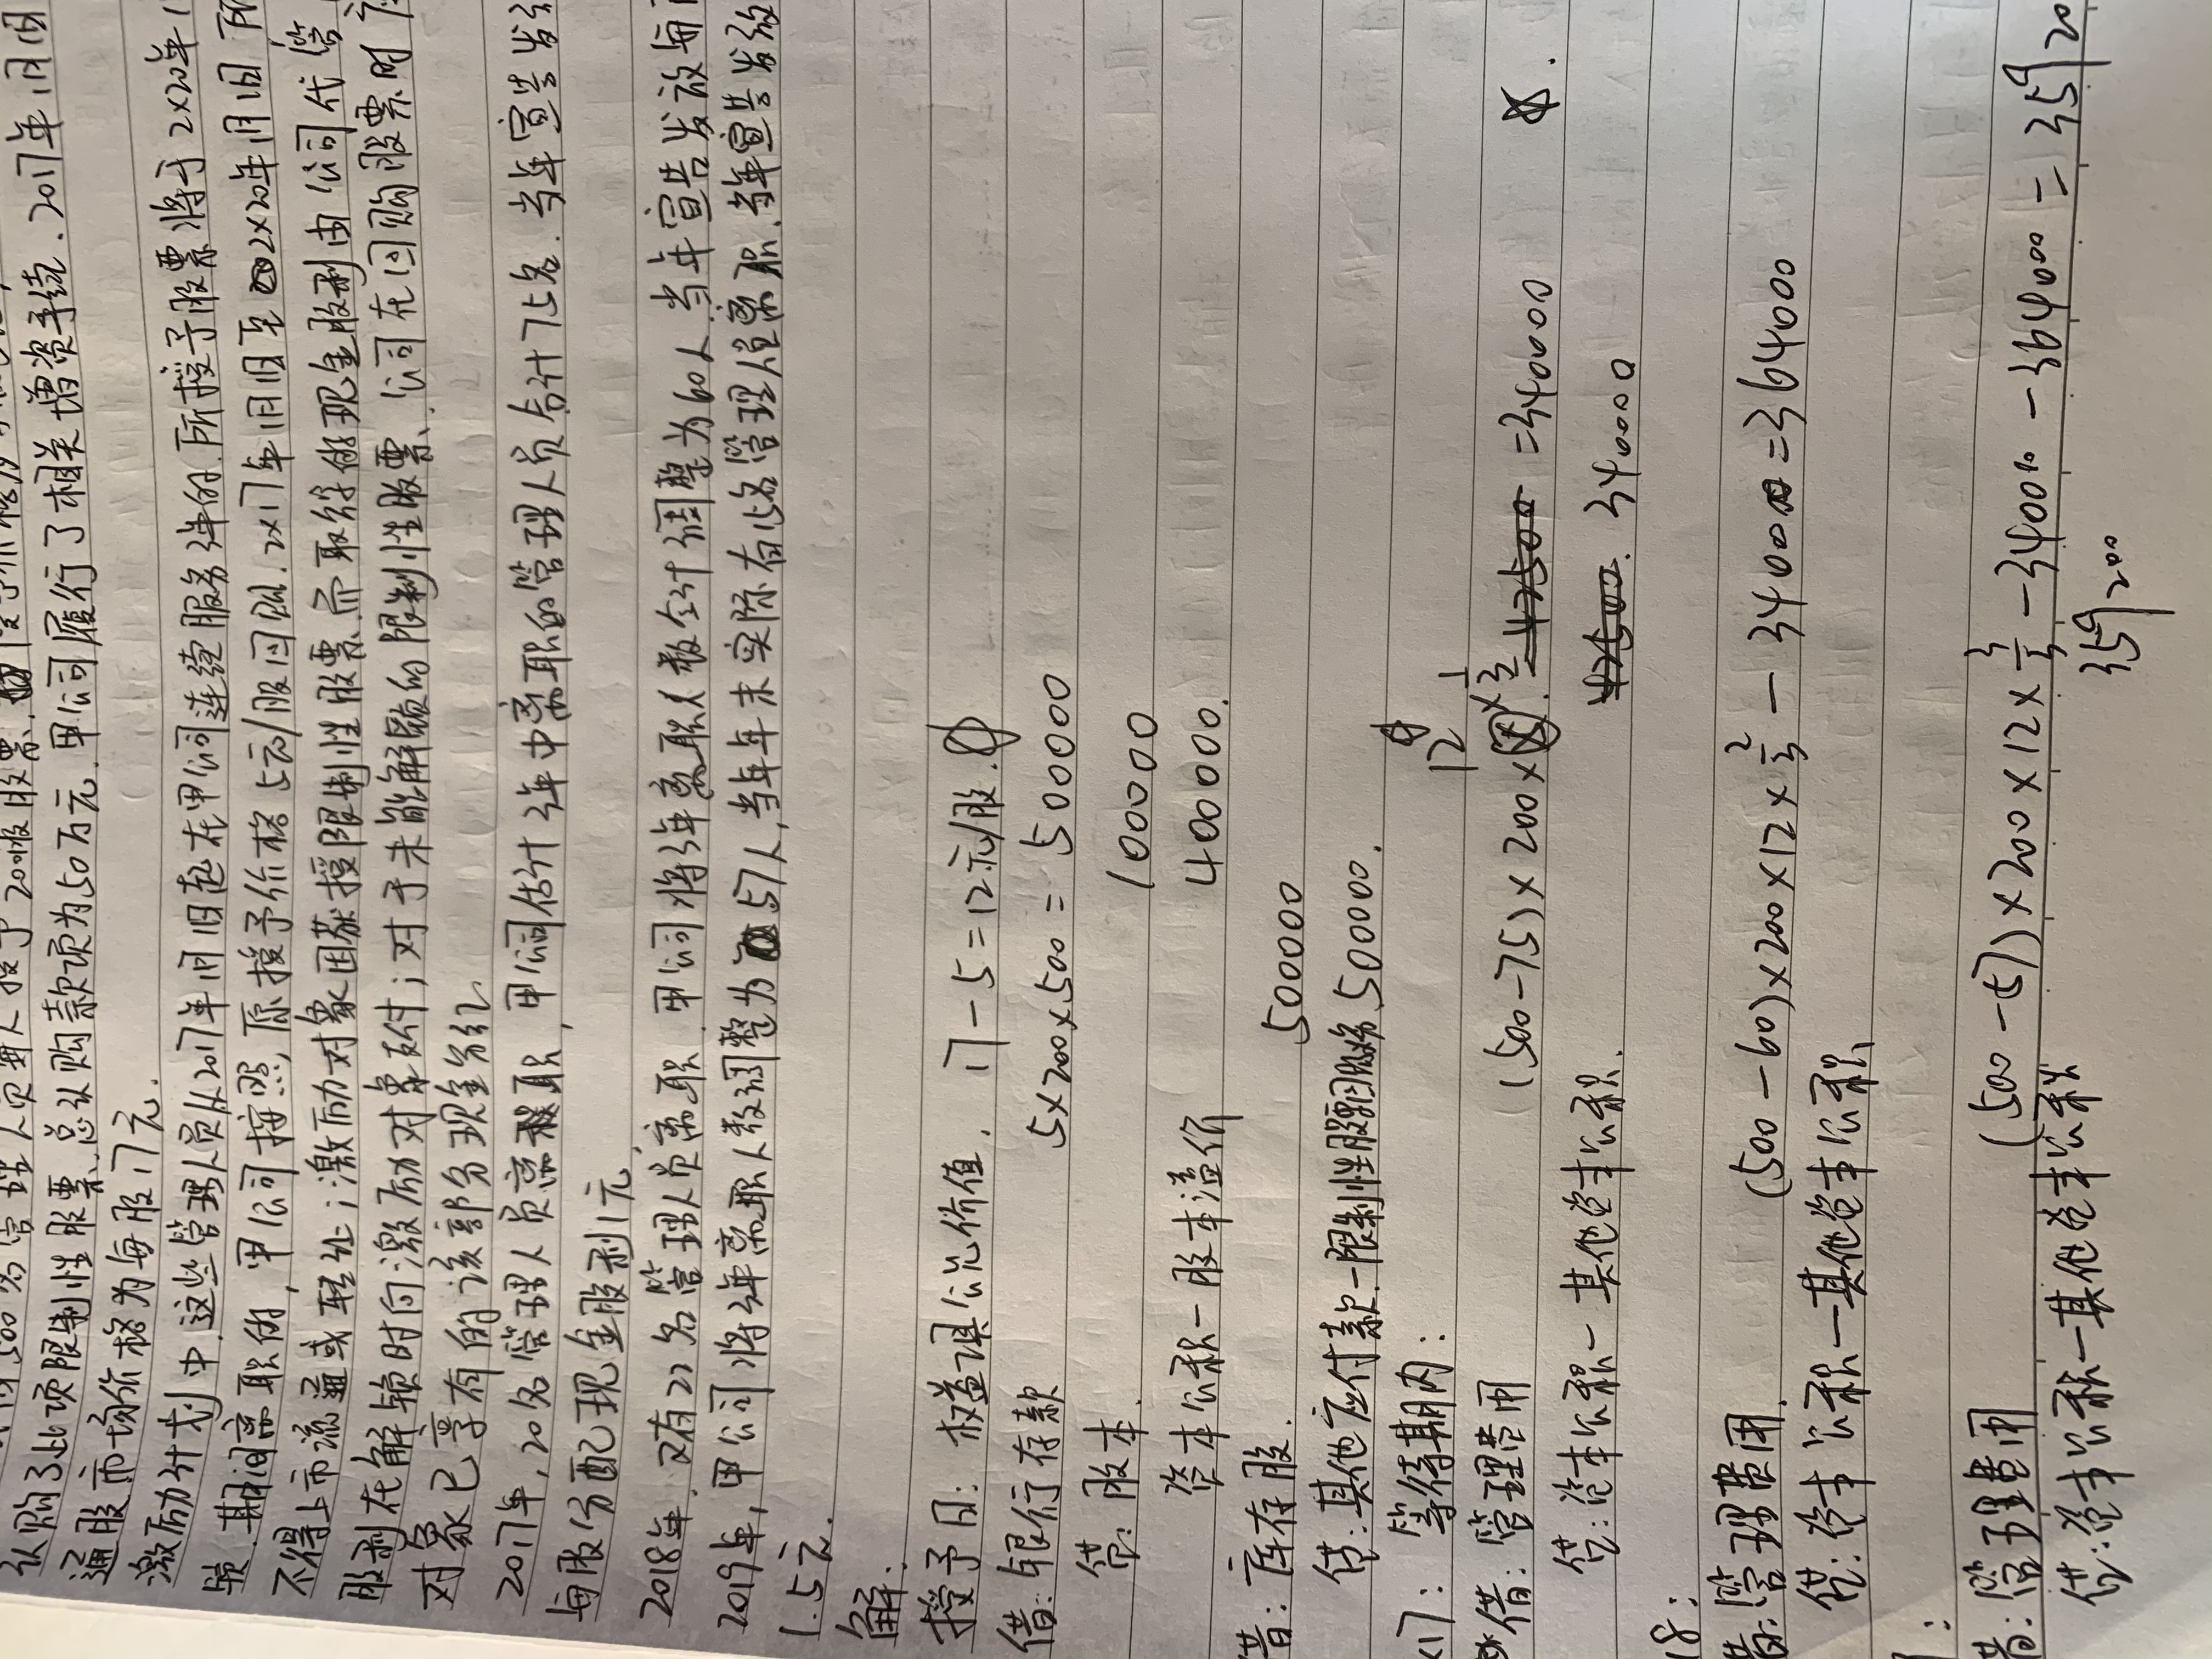 500名管理人员每人授予200股股票
认购了此项限制性股票,总认购款项为50万元.甲公司履行了相关增资手续.2017年1月1日
通股市场价格为每股17元.
激励计划中,这些管理人员从2017年1月1日起在甲公司连续服务3年的.所授予股票将于2×20年1
锁.期间离职的,甲公司按照原授予价格5元/股回购.2×17年1月1日至2×20年1月1日,所
不得上市流通或转让;激励对象因获授限制性股票而取得的现金股利由公司代管
股利在解锁时向激励对象支付;对于未能解锁的限制性股票、公司在回购股票时应
对象已享有的该部分现金分红
2017年,20名管理人员离职,甲公司估计3年中离职的管理人员合计75名.当年宣告发
每股分配现金股利1元,
2018年,又有22名管理人员离职.甲公司将3年离职人数合计调整为60人.当年宣告发放每
2019年,甲公司将3年离职人数调整为57人,当年年末实际有15名管理人员离职.当年宣告发放
1.5元.
解:
授予日: 权益工具公允价值. 17-5=12元/股.
借:银行存款 5×200×500= 500000
贷:股本. 100000
资本公积-股本溢价 400000.
借:库存股. 500000
贷:其他应付款-限制性股票回购义务 500000.
×17: 等待期内:
借:管理费用 (500-75)×200×12×1/3 =340000
贷:资本公积-其他资本公积. 340000
18:
借:管理费用. (500-60)×200×12×2/3-340000=364000
贷:资本公积-其他资本公积
:
借:管理费用 (500-57)×200×12×3/3-340000-364000=35920
贷:资本公积-其他资本公积 359200